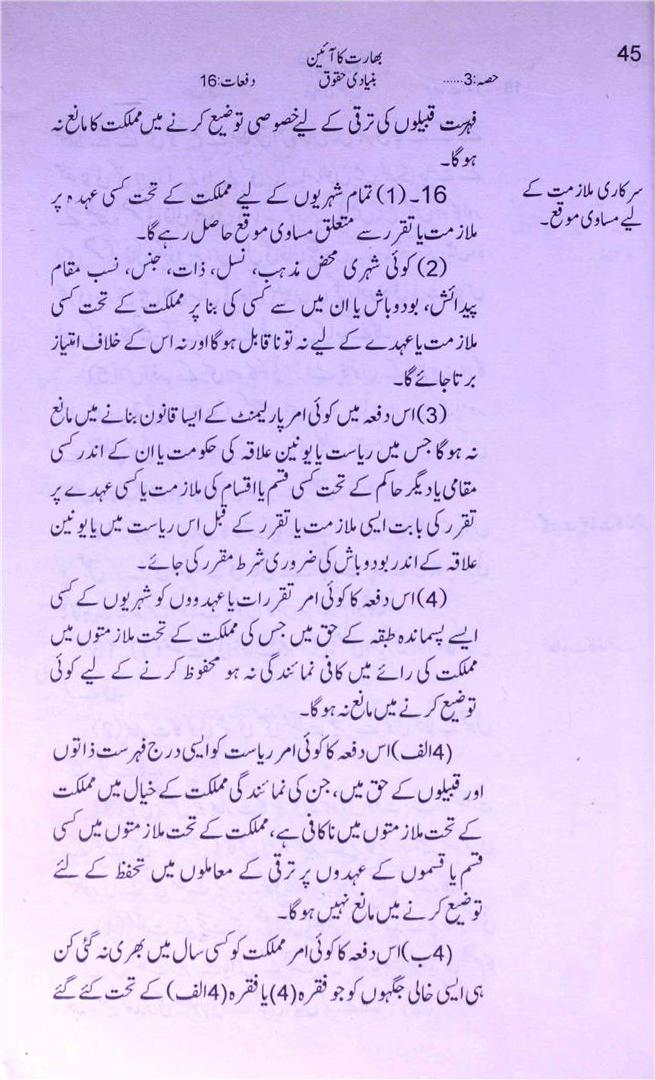 45
بھارت کا آئین
حصہ:3...... بنیادی حقوق دفعات:16
فہرست قبیلوں کی ترقی کے لیے خصوصی توضیع کرنے میں مملکت کا مانع نہ
ہوگا۔
سرکاری ملازمت کے
لیے مساوی موقع۔
16۔(1) تمام شہریوں کے لیے مملکت کے تحت کسی عہدہ پر
ملازمت یا تقرر سے متعلق مساوی موقع حاصل رہے گا۔
(2) کوئی شہری محض مذہب، نسل، ذات، جنس، نسب مقام
پیدائش، بودوباش یا ان میں سے کسی کی بنا پر مملکت کے تحت کسی
ملازمت یا عہدے کے لیے نہ تو ناقابل ہوگا اور نہ اس کے خلاف امتیاز
برتا جائے گا۔
(3) اس دفعہ میں کوئی امر پارلیمنٹ کے ایسا قانون بنانے میں مانع
نہ ہوگا جس میں ریاست یا یونین علاقہ کی حکومت یا ان کے اندر کسی
مقامی یا دیگر حاکم کے تحت کسی قسم یا اقسام کی ملازمت یا کسی عہدے پر
تقرر کی بابت ایسی ملازمت یا تقرر کے قبل اس ریاست میں یا یونین
علاقہ کے اندر بودوباش کی ضروری شرط مقرر کی جائے۔
(4) اس دفعہ کا کوئی امر تقررات یا عہدووں کو شہریوں کے کسی
ایسے پسماندہ طبقہ کے حق میں جس کی مملکت کے تحت ملازمتوں میں
مملکت کی رائے میں کافی نمائندگی نہ ہو محفوظ کرنے کے لیے کوئی
توضیع کرنے میں مانع نہ ہوگا۔
(4الف) اس دفعہ کا کوئی امر ریاست کو ایسی درج فہرست ذاتوں
اور قبیلوں کے حق میں، جن کی نمائندگی مملکت کے خیال میں مملکت
کے تحت ملازمتوں میں ناکافی ہے، مملکت کے تحت ملازمتوں میں کسی
قسم یا قسموں کے عہدوں پر ترقی کے معاملوں میں تحفظ کے لئے
توضیع کرنے میں مانع نہیں ہوگا۔
(4ب) اس دفعہ کا کوئی امر مملکت کو کسی سال میں بھری نہ گئی کن
ہی ایسی خالی جگہوں کو جو فقرہ (4) یا فقرہ (4الف) کے تحت کئے گئے